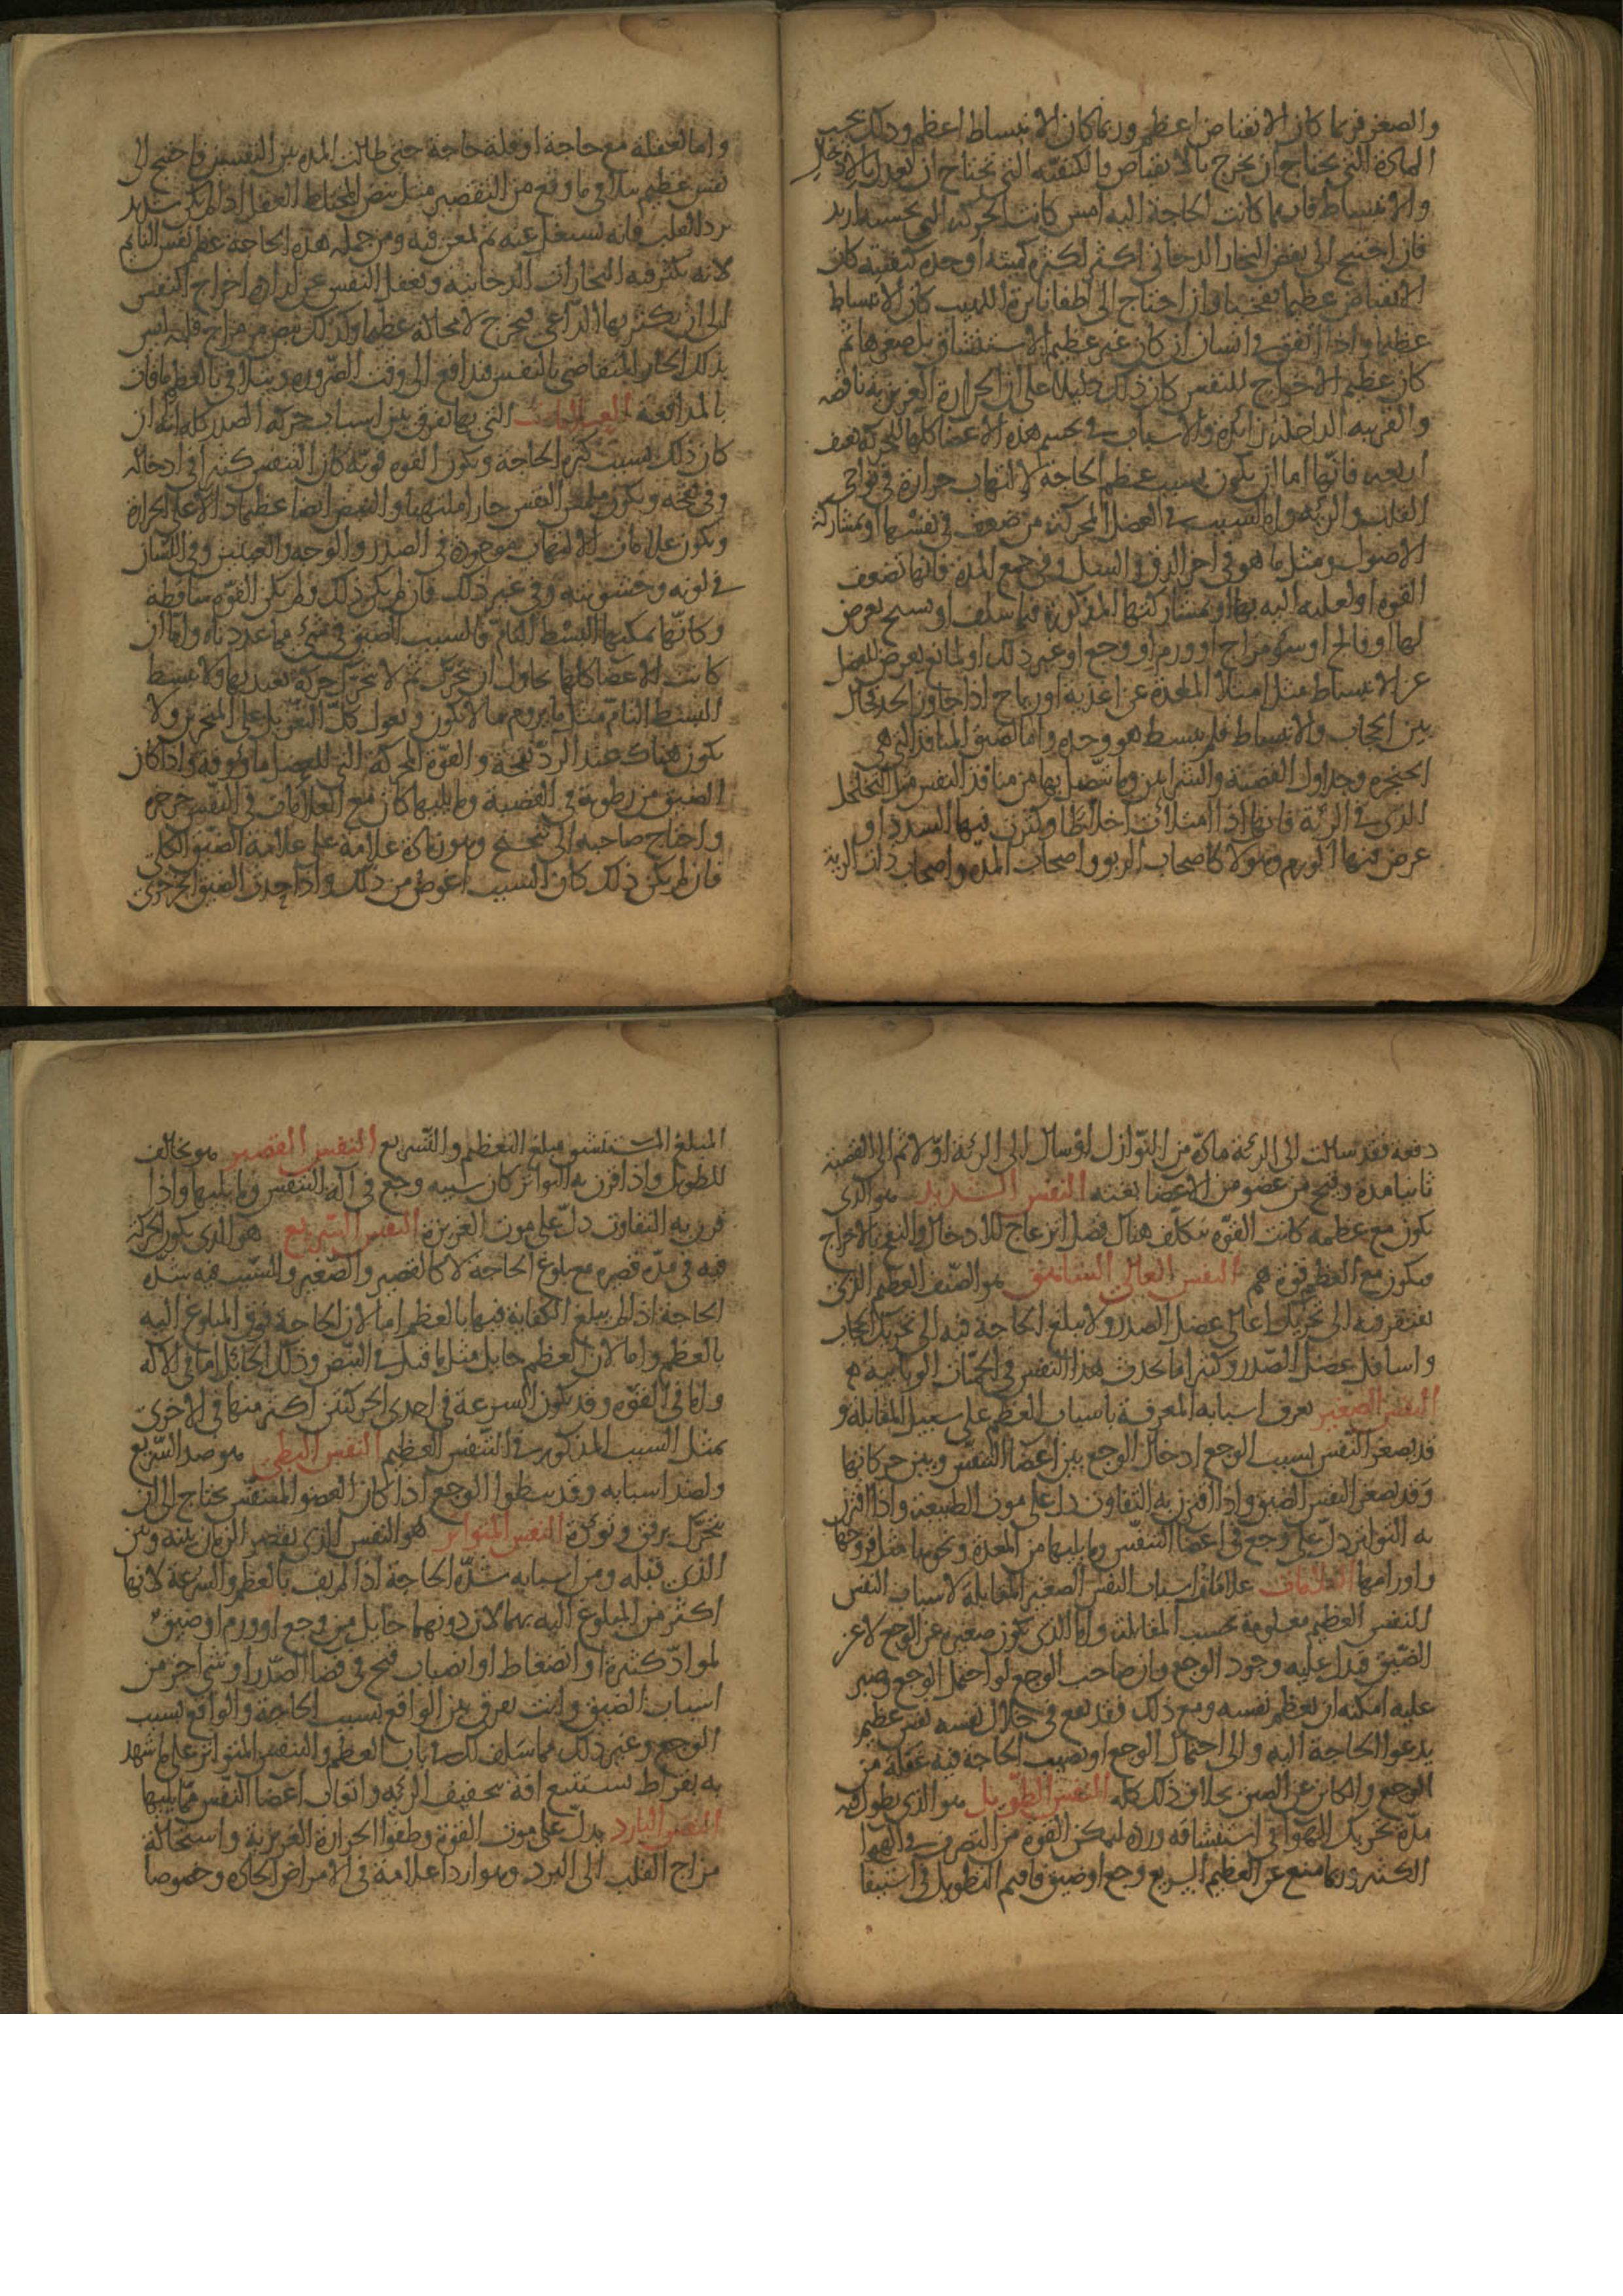 والصغر فربما كان الانقباض اعظم وربما كان الانبساط اعظم وذلك بحسب
المادة التي تحتاج ان تخرج بالانقباض والكيفيه التي تحتاج ان تعدل بالادخال
والانبساط فايهما كانت الحاجة اليه امس كانت الحركة التي بحسبه ازيد
فان احتيج الى نفض البخار الدخاني اكثر لكثرة كميته او حدة كيفيته كان
الانقباض عظيما نفخيا وان احتاج الى اطفا نايرة اللهيب كان الانبساط
عظيما واذا اتفق في انسان ان كان غير عظيم الاستنشاق بل صغيرها ثم
كان عظيم الاخراج للنفس كان ذلك دليلا على ان الحرارة الغريزية ناقصه
والغريبه الداخله زائدة والاسباب في تجشم هذه الاعضا كلها للحركة بعنف
اربعه فانها اما ان يكون بسبب عظم الحاجة لالتهاب حرارة في نواحي
القلب والرئه واما لسبب في العضل المحركة من ضعف في نفسها او بمشاركة
الاصول ومثل ما هو في اخر الدق و السل وفي جمع المدة فانها تضعف
القوة او لعله اليه بها او بمشاركتها المذكورة فيما سلف او تشنج يعرض
لها او فالج او سؤ مزاج او ورم او وجع او غير ذلك او لمانع يعرض للعضل
عن الانبساط مثل امتلا المعدة عن اغذية او رياح اذا جاوز الحد فحال
بين الحجاب والانبساط فلم ينبسط هو وحده واما لضيق المنافذ التي هي
الحنجره وجداول القصبة والشرايين وما يتصل بها من منافذ النفس من التخلخل
الذي في الرئة فانها اذا امتلات اخلاطا وكثرت فيها السدد او
عرض فيها الورم وهولا كاصحاب الربو واصحاب المدة واصحاب ذات الرية
واما لغفلة مع حاجة او قلة حاجة حتى طالت المدة بين النفسين فاحتيج الى
نفس عظيم يتلافى ما وقع من التقصير مثل نفس المختلط العقل اذا لم يكن شديد
برد القلب فانه يشتغل عنه ثم يمعن فيه ومن جملة هذه الحاجة عظم نفس النايم
لانه يكثر فيه البخارات الدخانية وتغفل النفس عن ارادة اخراج النفس
الى ان يكثر بها الداعي فيخرج لا محالة عظيما وكذلك نفس من مزاج قلبه ليس
بذلك الحار المتقاضي بالنفس فيدافع الى وقت الضرورة ويتلافى بالعظم ما فات
بالمدافعة العلامات التي بها يفرق بين اسباب حركة الصدر كله انه ان
كان ذلك بسبب كثرة الحاجة وتكون القوة قوية كان النفس كثيرا في ادخاله
وفي نفخه ويكون ملمس النفس حارا ملتهبا والنبض ايضا عظيما دالا على الحرارة
وتكون علامات الالتهاب موجودة في الصدر والوجه والعينين وفي اللسان
في لونه وخشونته وفي غير ذلك فان لم يكن ذلك ولم يكن القوة ساقطة
وكانها يمكنها البسط التام فالسبب الضيق في شيء مما عددناه واما ان
كانت الاعضا كلها تحاول ان تتحرك ثم لا تتحرك حركة يعتد بها ولا تنبسط
البسط التام مثل ما يروم ما لا يكون ويعول كل التعويل على المنخرين ولا
يكون هناك عند الرد نفخة والقوة المحركة التي للعضل ماؤوفة واذا كان
الضيق من رطوبة في القصبة وما يليها كان مع العلامات في النفس خرخرة
واحتاج صاحبه الى تنحنح وهو زيادة علامة على علامة الضيق الكلي
فان لم يكن ذلك كان السبب اغوص من ذلك واذا حدث الضيق الخرخري
دفعه فقد سالت الى الرئة مادة من النوازل او سال الى الرئة اولا ثم الى القصبة
ثانيا مدة وقيح من عضو من الاعضا بغتة النفس الشديد هو الذي
يكون مع عظمه كانت القوة تتكلف هناك فضل انزعاج للادخال والنفخ بالاخراج
فيكون مع العظم قوة هم النفس العالي الشاهق هو الصنف العظيم الذي
يفتقر فيه الى تحريك اعالي عضل الصدر ولا يبلغ الحاجة فيه الى تحريك الحجاب
واسافل عضل الصدر وكثيرا ما يحدث هذا النفس في الحميات الوبائية هم
النفس الصغير يعرف اسبابه المعرفة باسباب العظم على سبيل المقابلة و
قد يصغر النفس بسبب الوجع ادخال الوجع بين اعضا التنفس وبين حركاتها
وقد يصغر النفس الضيق واذا اقترن به التفاوت دل على موت الطبيعة واذا اقترن
به التواتر دل على وجع في اعضا التنفس وما يليها من المعدة ونحوها مثل قروحها
واورامها العلامات علامات اسباب النفس الصغير المقابلة لاسباب النفس
للنفس العظيم معلومة بحسب المقابلة واما الذي يكون صغيره عن الوجع لا عن
الضيق فيدل عليه وجود الوجع وان صاحب الوجع لو احتمل الوجع وصبر
عليه امكنه ان يعظم نفسه ومع ذلك فقد يقع في خلال نفسه نفس عظيم
يدعو الحاجة اليه والى احتمال الوجع او تصيب الحاجة فيه غفلة من
الوجع والكاين عن الضيق بخلاف ذلك كله النفس الطويل هو الذي يطول فيه
مدة تحريك الهوا في استنشاقه ورده ليمكن القوة من التصرف في الهوا
الكثير وربما منع عن العظيم السريع وجع او ضيق فاقيم التطويل في استيفا
المبلغ المستنشق مبلغ التعظيم والتسريع النفس القصير هو يخالف
للطويل واذا قرن به التواتر كان سببه وجع في آلة التنفس وما يليها واذا
قرن به التفاوت دل على موت الغريزة النفس السريع هو الذي يكون الحركة
فيه في مدة قصيرة مع بلوغ الحاجة لا كالقصير والصغير والسبب فيه شدة
الحاجة اذا لم يبلغ الكفاية فيها بالعظم اما لان الحاجة فوق المبلوغ اليه
بالعظم واما لان العظم حايل مثل ما قيل في النبض وذلك الحائل اما في الآلة
واما في القوة وقد يكون السرعة في احدى الحركتين اكثر منها في الاخرى
بمثل السبب المذكور في التنفس العظيم النفس البطي هو ضد السريع
ولضد اسبابه وقد يبطوا الوجع اذا كان العضو المتنفس يحتاج الى ان
يتحرك برفق وتوئدة النفس المتواتر هو النفس الذي يقصر الزمان بينه وبين
الذي قبله ومن اسبابه شدة الحاجة اذا لم يف بالعظم والسرعة لانها
اكثر من البلوغ اليه بهما لان دونهما حايل من وجع او ورم او ضيق
لمواد كثيرة او انضغاط او انصباب قيح في فضا الصدر او شي اخر من
اسباب الضيق وانت تفرق بين الواقع بسبب الحاجة والواقع بسبب
الوجع وغير ذلك مما سلف لك في باب العظم والنفس المتواتر على ما شهد
به بقراط يستتبع افة تجفيف الرئة واتعاب اعضا النفس مما يليها
النفس البارد يدل على موت القوة وطفوا الحرارة الغريزية واستحالة
مزاج القلب الى البرد وهو اردا علامة في الامراض الحادة وخصوصا